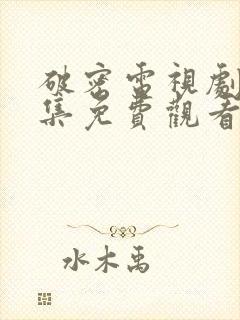 破密電視劇
集免費觀看
水木禹